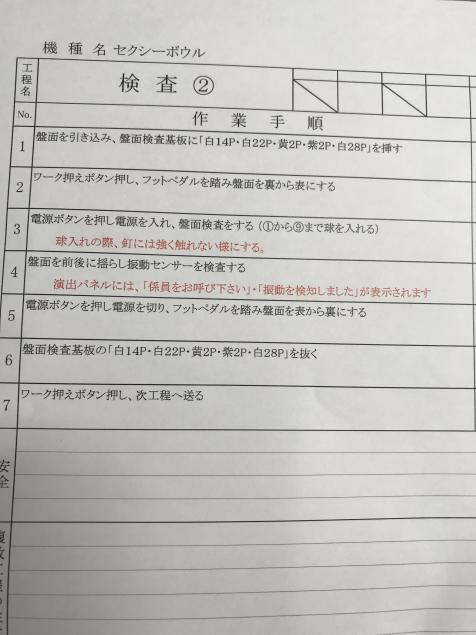 機種名 セクシーボウル
工程名
検査②
No.
作業手順
1
盤面を引き込み、盤面検査基板に「白14P・白22P・黄2P・紫2P・白28P」を挿す
2
ワーク押えボタン押し、フットペダルを踏み盤面を裏から表にする
3
電源ボタンを押し電源を入れ、盤面検査をする（①から⑨まで球を入れる）
球入れの際、釘には強く触れない様にする。
4
盤面を前後に揺らし振動センサーを検査する
演出パネルには、「係員をお呼び下さい」・「振動を検知しました」が表示されます
5
電源ボタンを押し電源を切り、フットペダルを踏み盤面を表から裏にする
6
盤面検査基板の「白14P・白22P・黄2P・紫2P・白28P」を抜く
7
ワーク押えボタン押し、次工程へ送る
安全